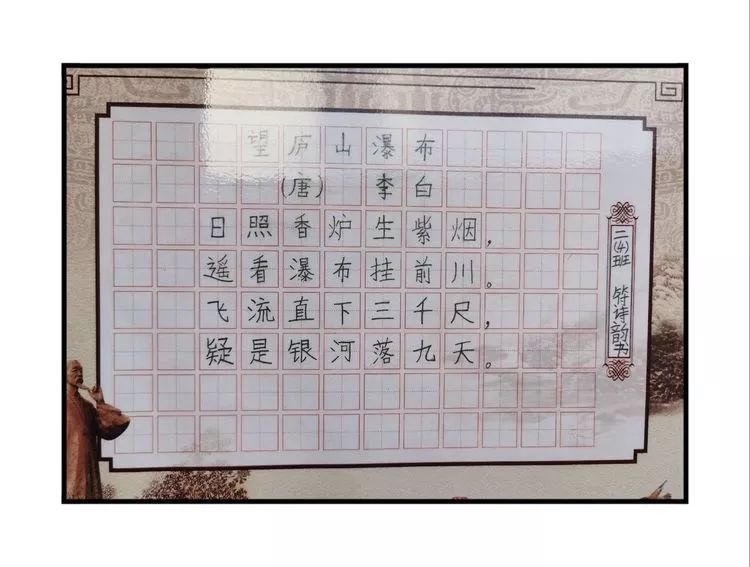 望庐山瀑布
(唐) 李白
日照香炉生紫烟,
遥看瀑布挂前川。
飞流直下三千尺,
疑是银河落九天。
二(4)班 符诗韵书